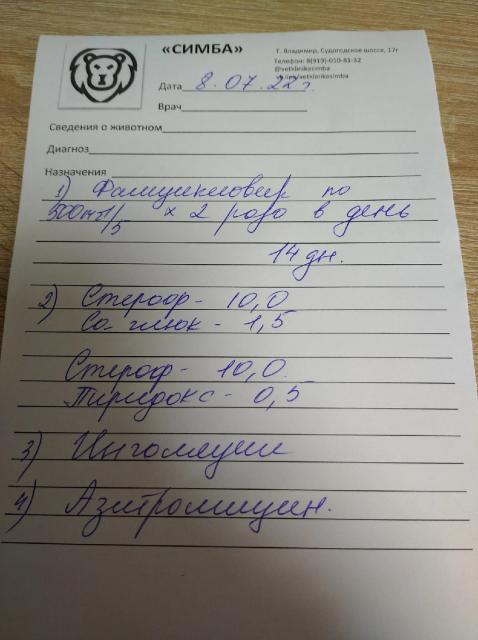 «СИМБА»
Г. Владимир, Судогодское шоссе, 17г
Телефон: 8(919)-010-81-32
@vetklinikasimba
vk.link/vetklinikasimba
Дата 8.07.22 г.
Врач
Сведения о животном
Диагноз
Назначения
1) Фамцикловир по
500мг 1/5 х 2 раза в день
14 дн.
2) Стероф - 10,0
Са глюк - 1,5
Стероф - 10,0
Пиридокс - 0,5
3) Ингаляции
4) Азитромицин.